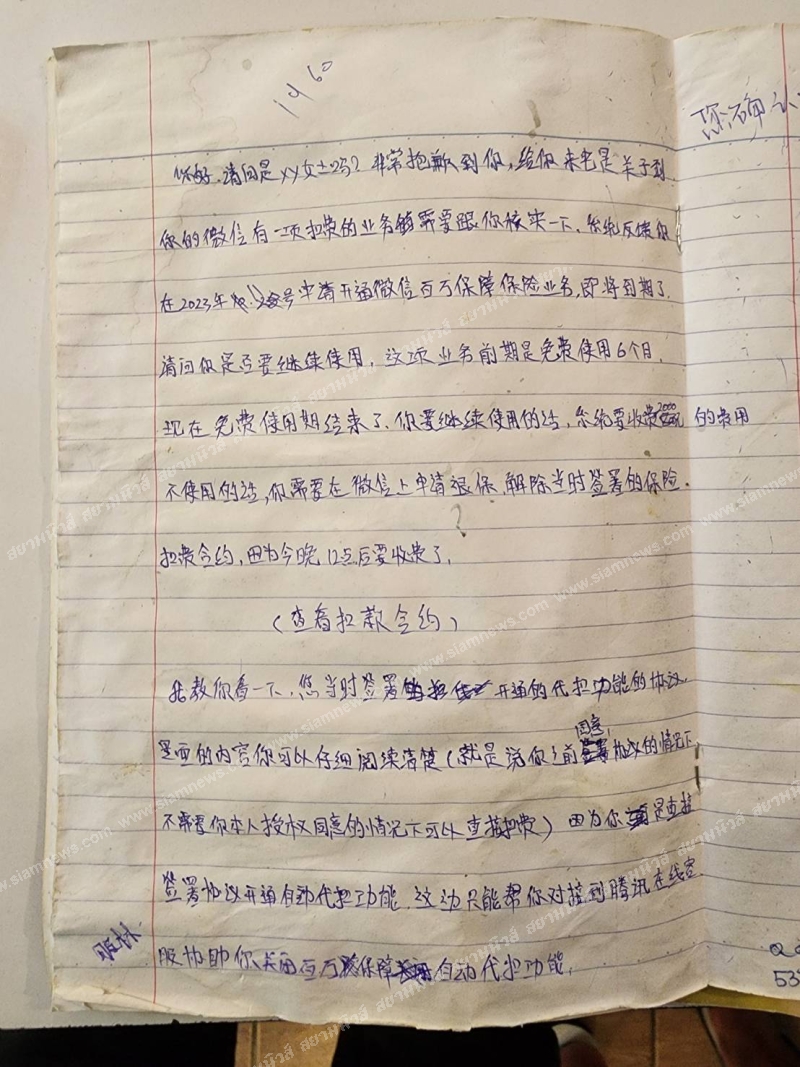 1960
您确认
你好.请问是XY女士吗?非常抱歉 到你,给你来电是关于到
你的微信有一项扣费的业务 需要跟你核实一下.系统反馈你
在2023年 号申请开通微信百万保障保险业务,即将到期了.
请问你是否要继续使用,这项业务前期是免费使用6个月.
现在免费使用期结束了.你要继续使用的话,系统要收费2000 的费用
不使用的话,你需要在微信上申请退保.解除当时签署的保险.
?
扣费合约,因为今晚12点后要收费了.
(查看扣款合约)
我教你看一下.您当时签署 开通的代扣功能的协议.
里面的内容你可以仔细阅读清楚(就是说你之前同意协议的情况下
不需要你本人授权同意的情况下可以直接扣费)因为你 是直接
签署协议开通自动代扣功能.这边只能帮你对接到腾讯在线客
服协助你关闭百万保障 自动代扣功能.
53
www.siamnews.com สยามนิวส์